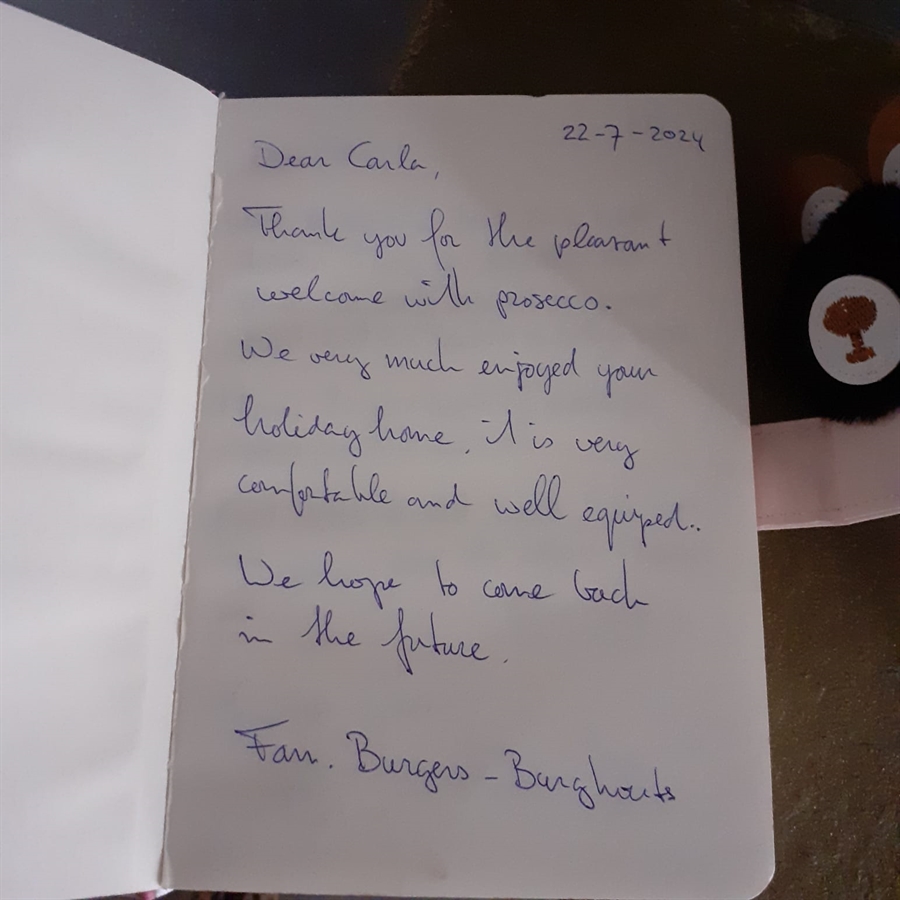 22-7-2024
Dear Carla,
Thank you for the pleasant
welcome with prosecco.
We very much enjoyed your
holiday home, it is very
comfortable and well equiped..
We hope to come back
in the future.
Fam. Burgers - Burghouts